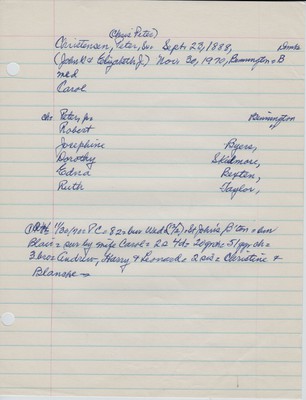 (Chris Peter)
Christensen, Peter, Sr. Sept. 23, 1888, Denmk
(John K & Elizabeth J) Nov. 30, 1970, Bennington = B
md
Carol
ch: Peter, jr. Bennington,
Robert
Josephine Byers,
Dorothy Skidmore,
Edna Rexten,
Ruth Taylor,
11/30/70: PC = 82 = bur Wed St John's, B'ton = bur
Blair = sur by wife Carol = 2s 4ds 20grch = 51 ggrch =
3 bro = Andrew, Harry & Leonard = 2 sis = Christine &
Blanche